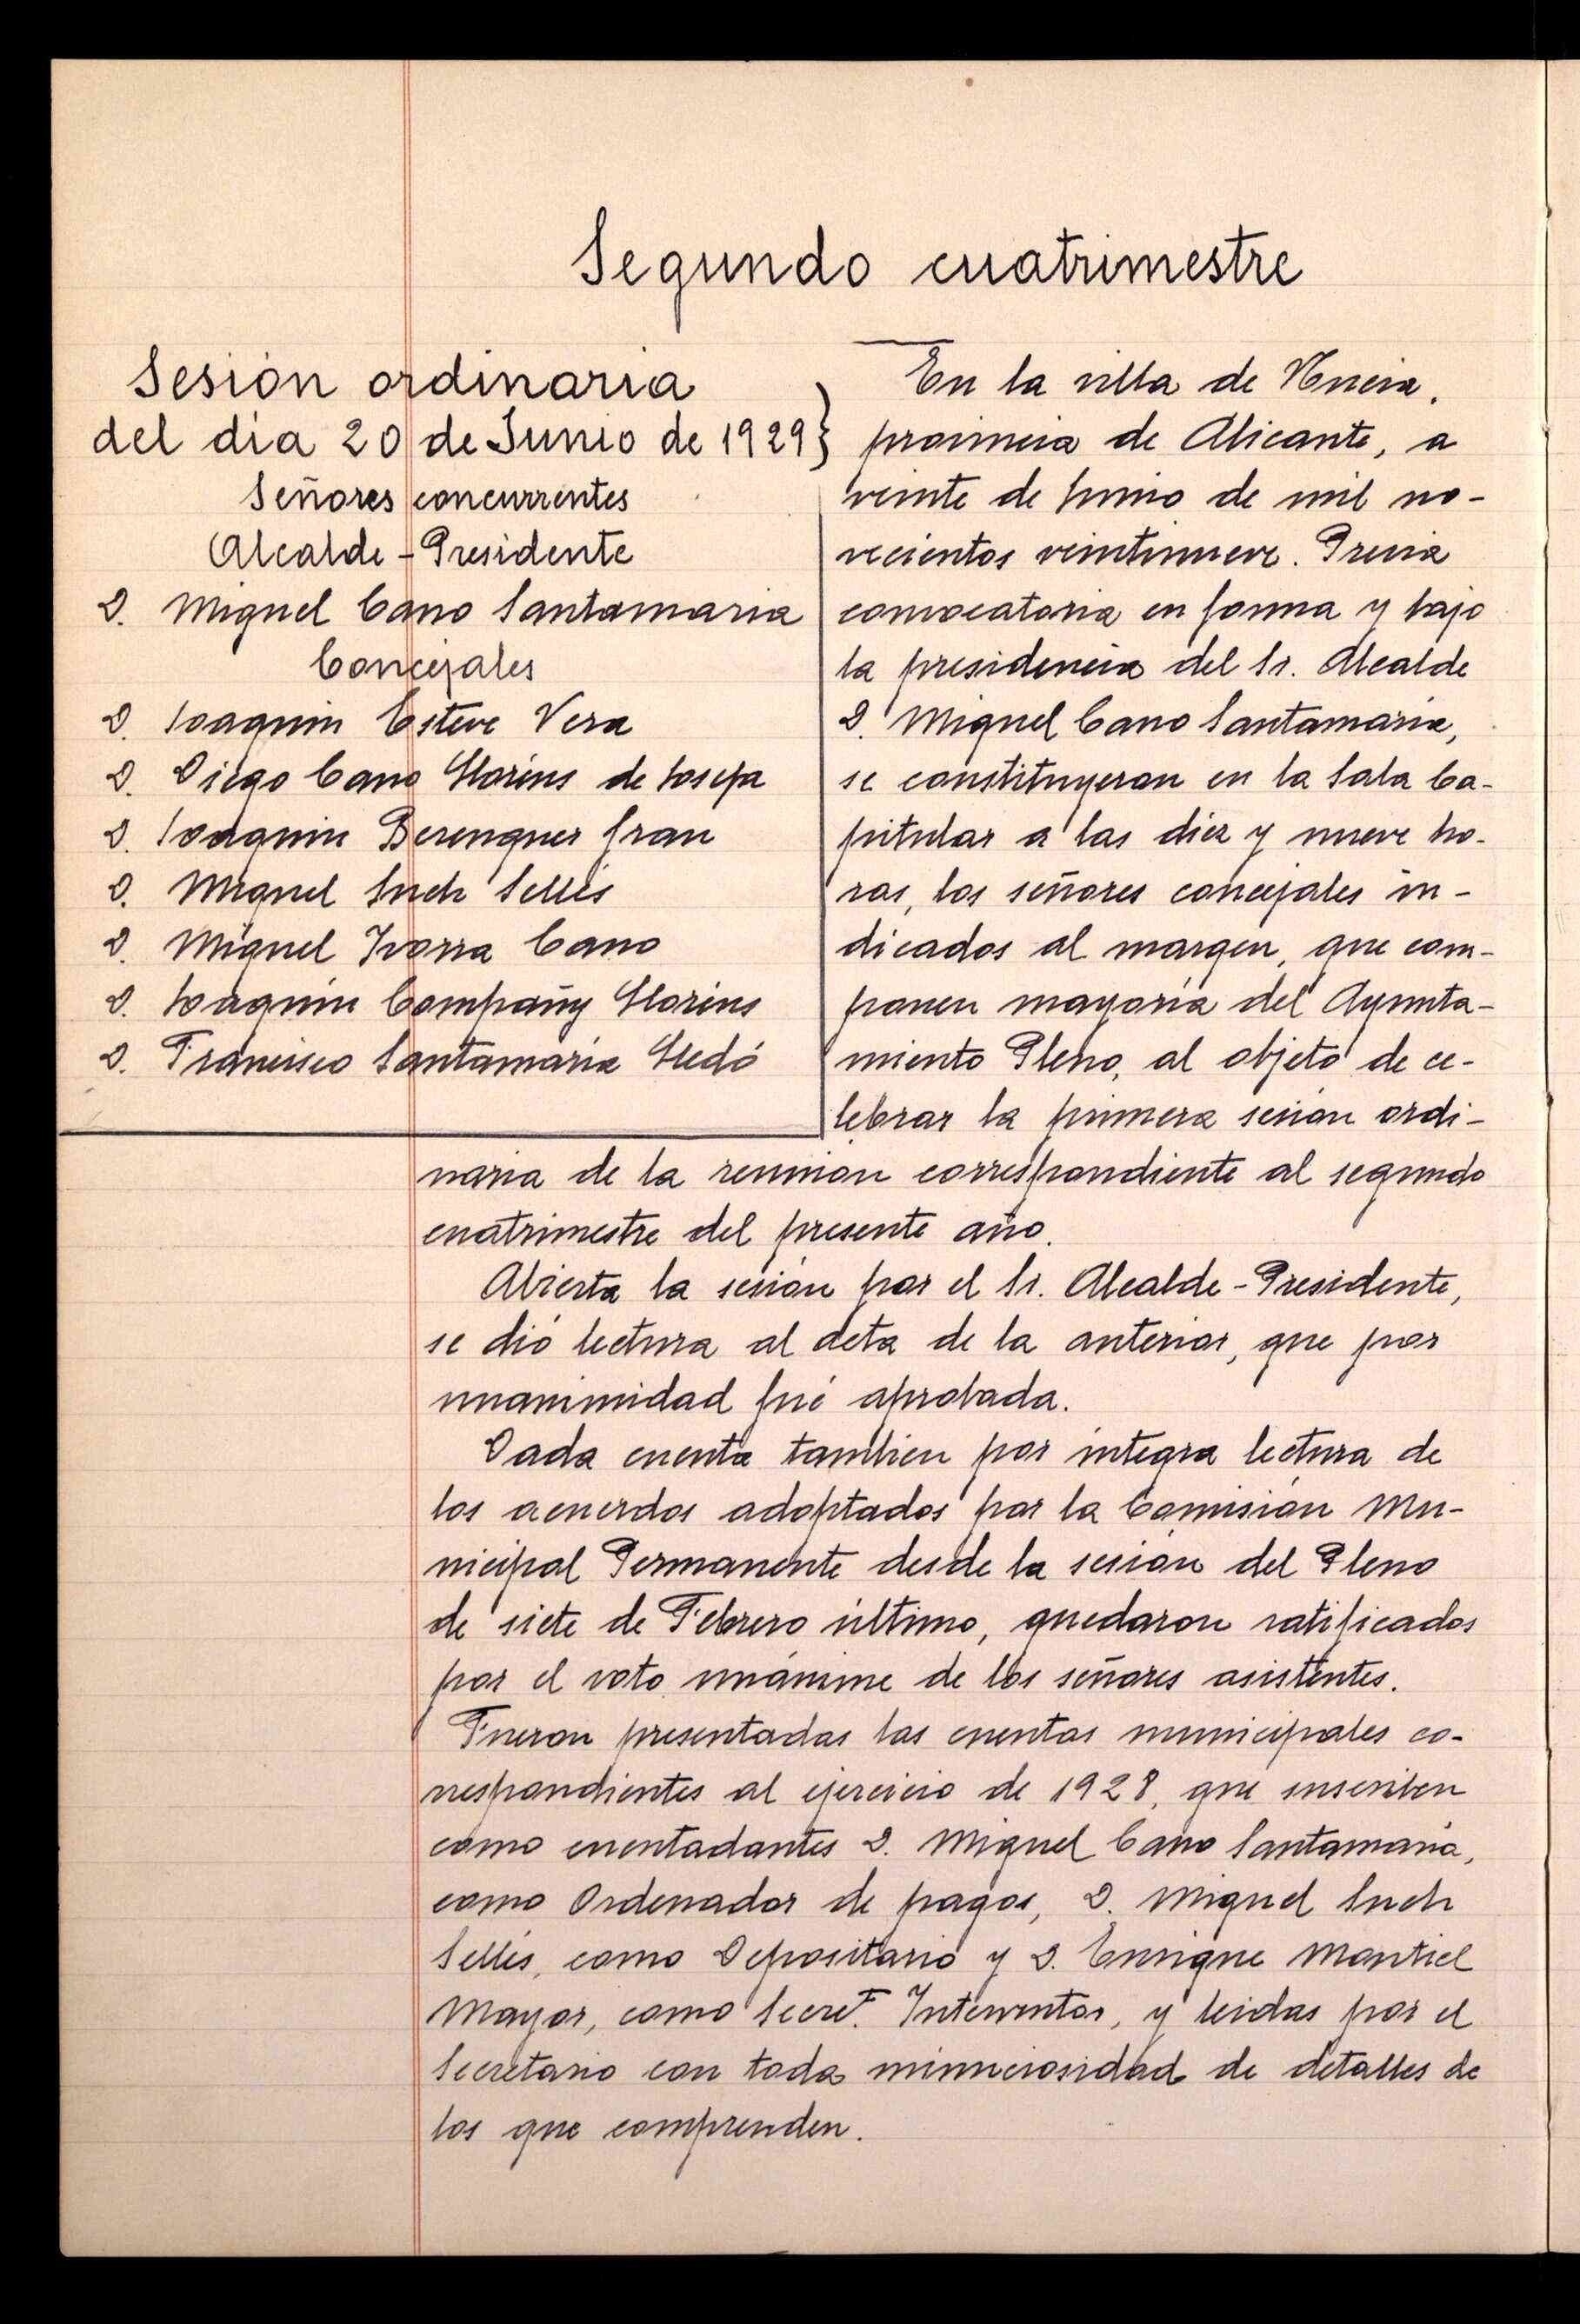 Segundo cuatrimestre
Sesión ordinaria
del dia 20 de Junio de 1929
Señores concurrentes
Alcalde-Presidente
D. Miguel Cano Santamaria
Concejales
D. Joaquin Esteve Vera
D. Diego Cano Llorens de Josefa
D. Joaquin Berenguer Gran
D. Miguel Such Sellés
D. Miguel Ivorra Cano
D. Joaquin Compañy Llorens
D. Francisco Santamaria Lledó
En la villa de Nucia,
provincia de Alicante, a
veinte de Junio de mil no-
vecientos veintinueve. Previa
convocatoria en forma y bajo
la presidencia del Sr. Alcalde
D. Miguel Cano Santamaria,
se constituyeron en la Sala Ca-
pitular a las diez y nueve ho-
ras, los señores concejales in-
dicados al margen, que com-
ponen mayoría del Ayunta-
miento Pleno, al objeto de ce-
lebrar la primera sesión ordi-
naria de la reunión correspondiente al segundo
cuatrimestre del presente año.
Abierta la sesión por el Sr. Alcalde-Presidente,
se dió lectura al acta de la anterior, que por
unanimidad fué aprobada.
Dada cuenta tambien por integra lectura de
los acuerdos adoptados por la Comisión Mu-
nicipal Permanente desde la sesión del Pleno
de siete de Febrero último, quedaron ratificados
por el voto unánime de los señores asistentes.
Fueron presentadas las cuentas municipales co-
rrespondientes al ejercicio de 1928, que suscriben
como cuentadantes D. Miguel Cano Santamaria,
como Ordenador de pagos, D. Miguel Such
Sellés, como Depositario y D. Enrique Montiel
Mayor, como Secret. Interventor, y leidas por el
Secretario con toda minuciosidad de detalles de
los que comprenden.